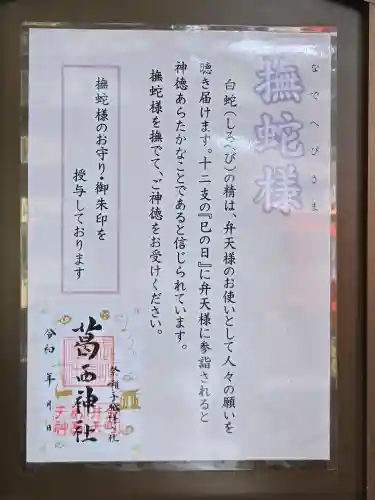 なでへびさま
撫蛇様
白蛇(しろへび)の精は、弁天様のお使いとして人々の願いを
聴き届けます。十二支の『巳の日』に弁天様に参詣されると
神徳あらたかなことであると信じられています。
撫蛇様を撫でて、ご神徳をお受けください。
撫蛇様のお守り・御朱印を
授与しております
葛西神社
令和 年 月 日